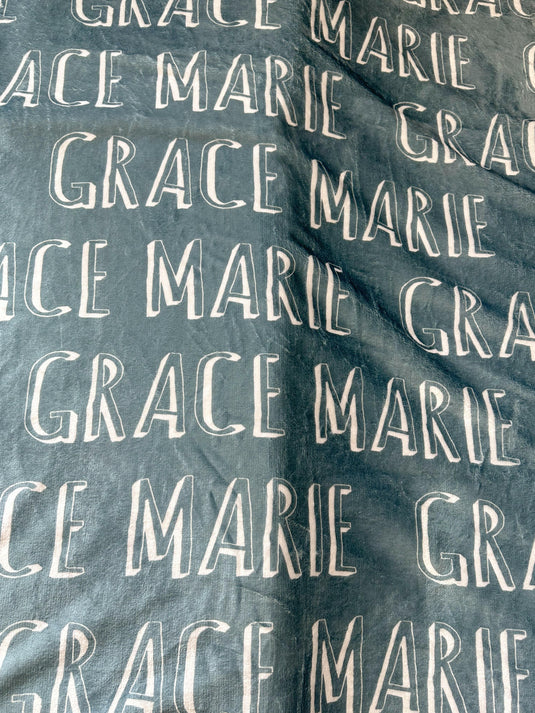 GRACE MARIE GRACE
ACE MARIE GRAC
GRACE MARIE
ACE MARIE GRA
GRACE MARIE
CE MARIE GRA
GRACE MARIE